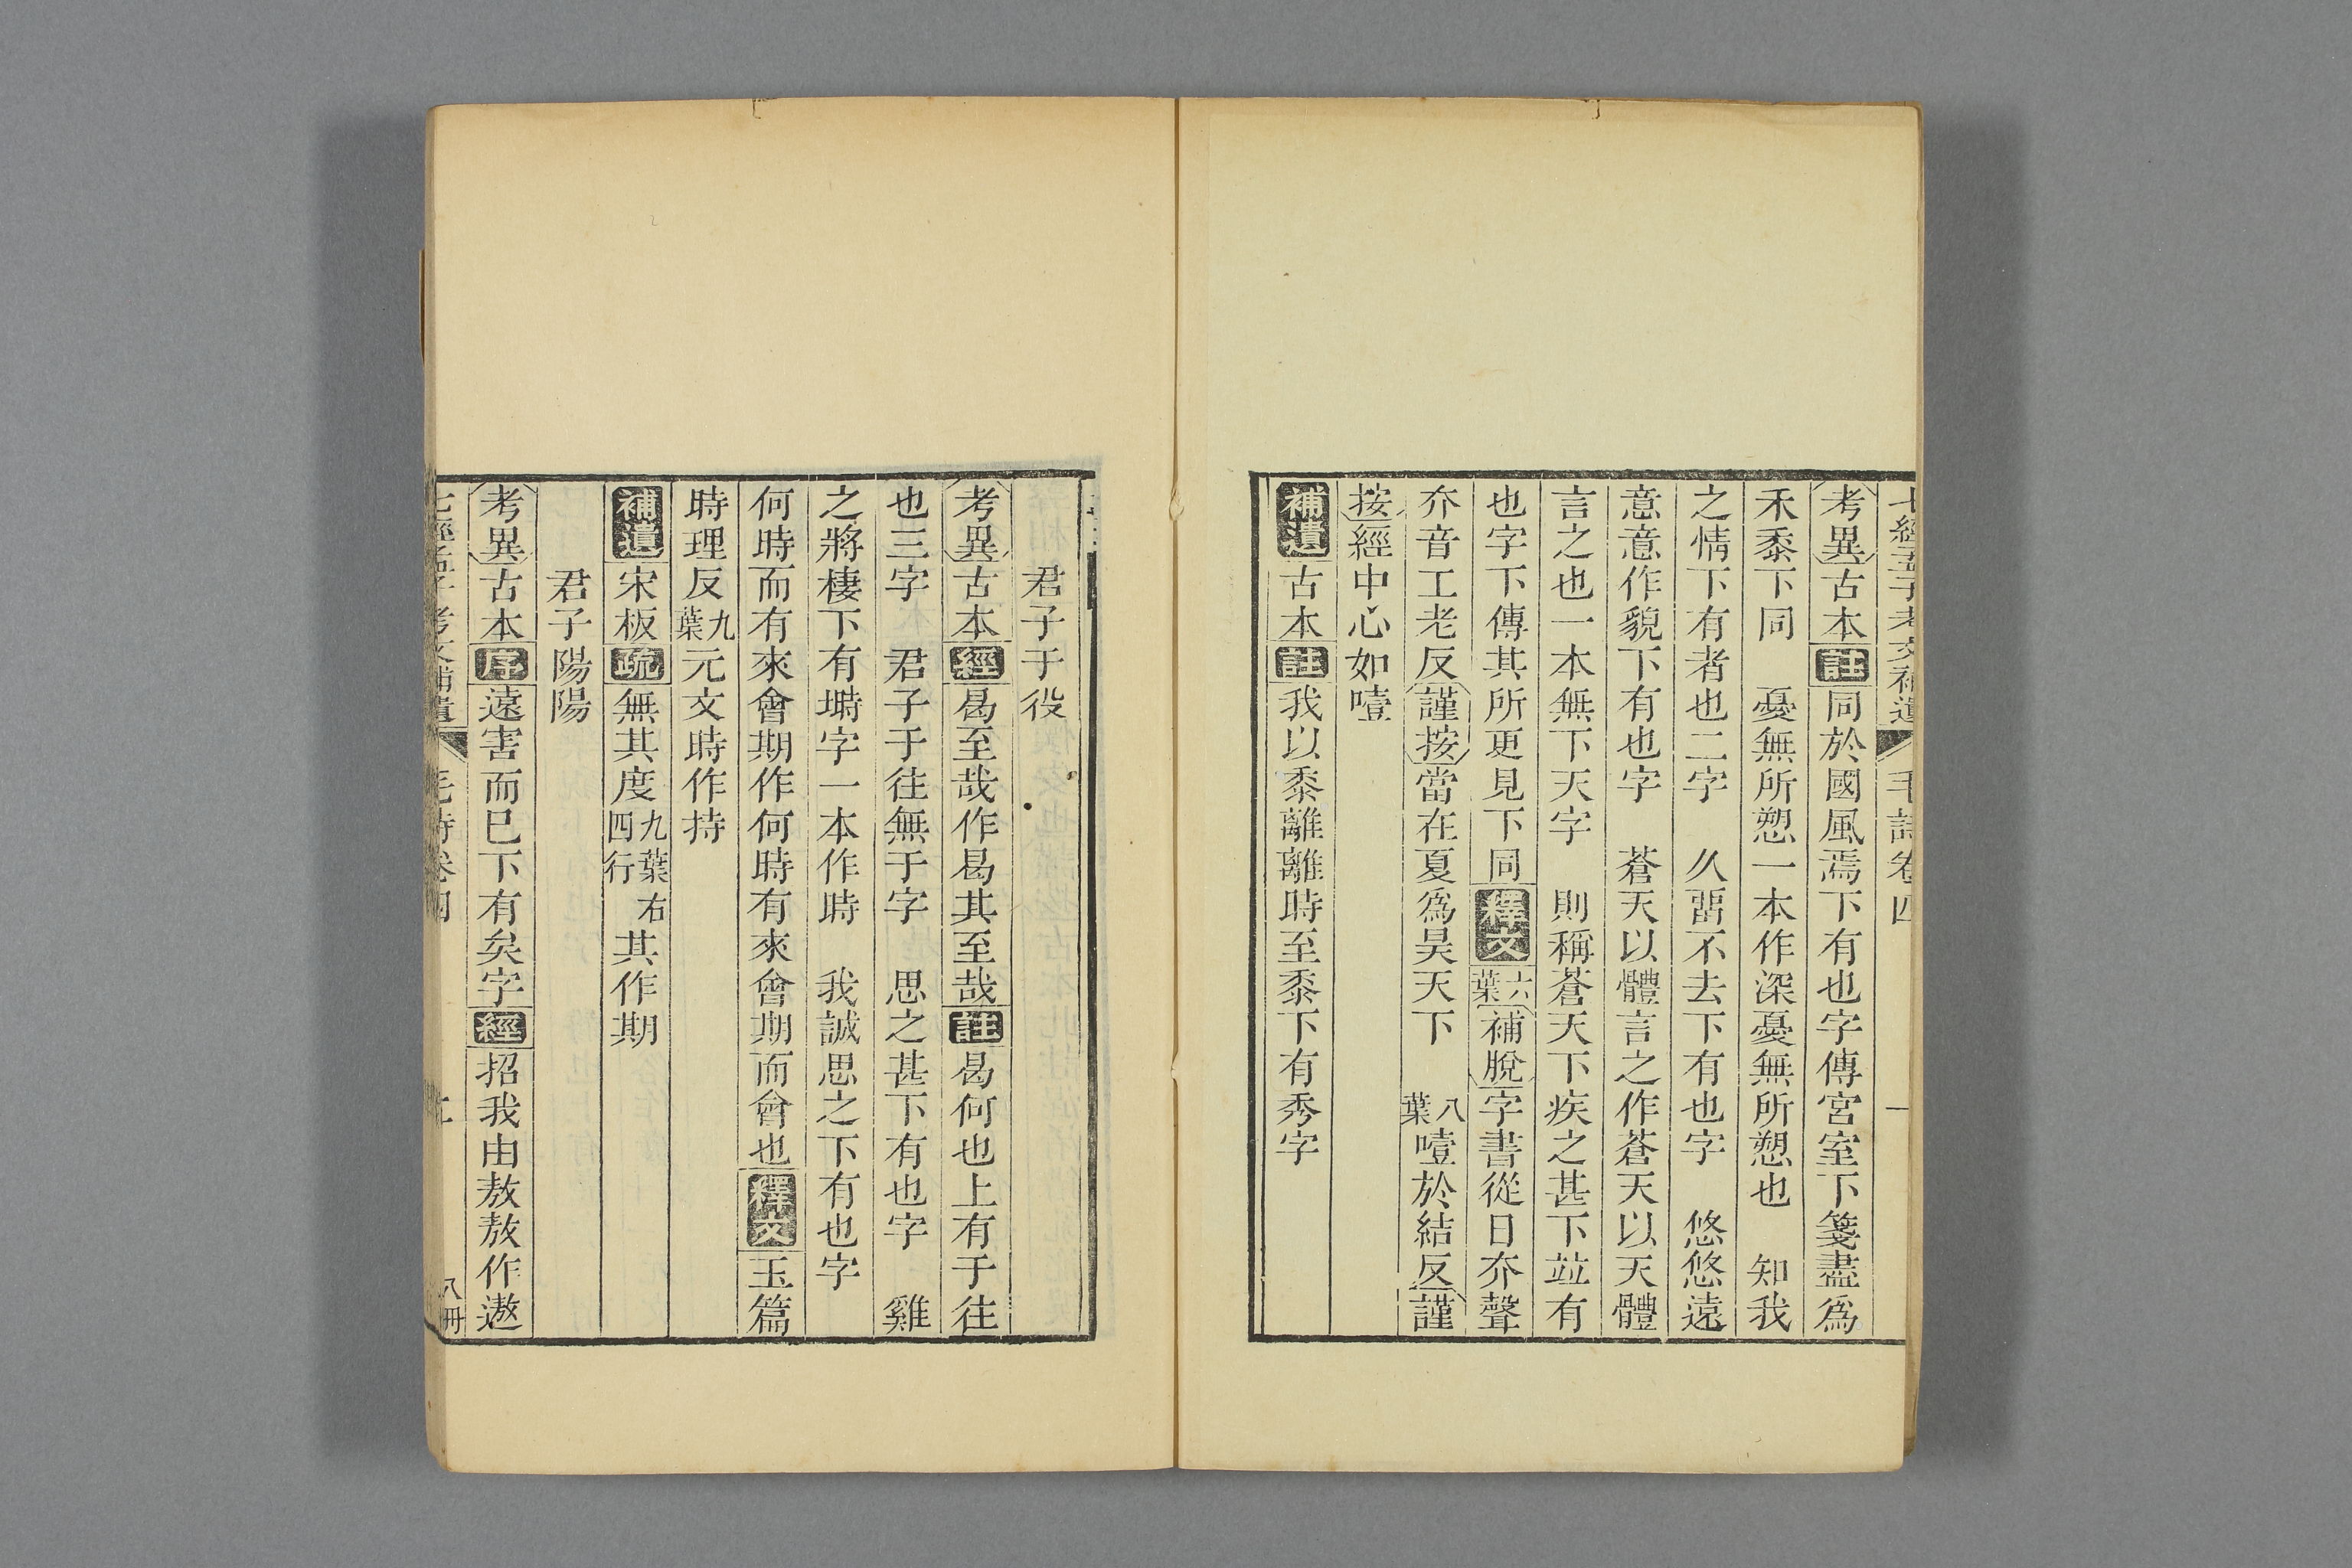 七經孟子考文補遺 毛詩卷四 一
考異古本註同於國風焉下有也字傳宮室下箋盡爲
禾黍下同 憂無所愬一本作深憂無所愬也 知我
之情下有者也二字 久畱不去下有也字 悠悠遠
意意作貌下有也字 蒼天以體言之作蒼天以天體
言之也一本無下天字 則稱蒼天下疾之甚下竝有
也字下傳其所更見下同釋文六葉補脫字書從日夰聲
夰音工老反謹按當在夏爲昊天下 八葉噎於結反謹
按經中心如噎
補遺古本註我以黍離離時至黍下有秀字
君子于役
考異古本經曷至哉作曷其至哉註曷何也上有于往
也三字 君子于往無于字 思之甚下有也字 雞
之將棲下有塒字一本作時 我誠思之下有也字
何時而有來會期作何時有來會期而會也釋文玉篇
時理反九葉元文時作持
補遺宋板疏無其度九葉右四行其作期
君子陽陽
考異古本序遠害而巳下有矣字經招我由敖敖作遨
七經孟子考文補遺 毛詩卷四 八冊